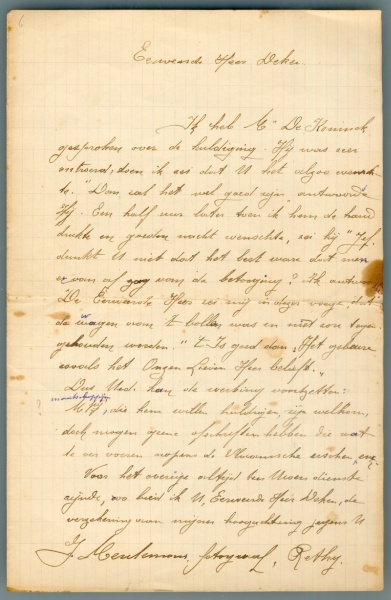 Eerweerde Heer Deken
Ik heb Mr De Koninck
gesproken over de huldiging. Hij was zeer
ontroerd, toen ik zei dat U het alzoo wensch-
te. "Dan zal het wel goed zijn" antwoordde
Hij. Een half uur later toen ik hem de hand
drukte en goeden nacht wenschte, zei hij "Jef,
dunkt U niet dat het best ware dat men
er van af zag van de betooging? Ik antwoor
De Eerwaarde Heer zei mij in dezer voege, dat
de wagen aan 't bollen was en niet kon tegen
gehouden worden. "'t Is goed dan, Het gebeure
zooals het Onzen Lieven Heer belieft."
Dus Ued. kan de werking voortzetten:
maatschappijen
? die hem willen huldigen, zijn welkom,
doch mogen geene opschriften hebben die
te ver vooren nopens de Vlaamsche eischen, enz
Voor het overige altijd ten Uwen dienste
zijnde, zoo bied ik U, Eerweerde Heer Deken, de
verzekering van mijne hoogachting jegens U
J. Meulemans, fotograaf, Rethy.